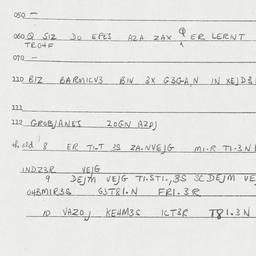 050 —
060 Q SIZ DO EPEI AZA ZAX Q ER LERNT
TROHF
070 —
110 BIZ BARMICV3 BIN 3X G3GA,N IN XEJD3
111
112 GROBJANES ZOGN AZOJ
8 ER TI.T 3S ZA.NVEJG MI.R TI.3N
INDZ3R VEJG
9 DEJM VEJG TI.STI.,3S 3C DEJM VE
OHBMIR3S G3T8I.N FRI.3R
10 VAZOJ KEHM3S ICT3R T8I.3N